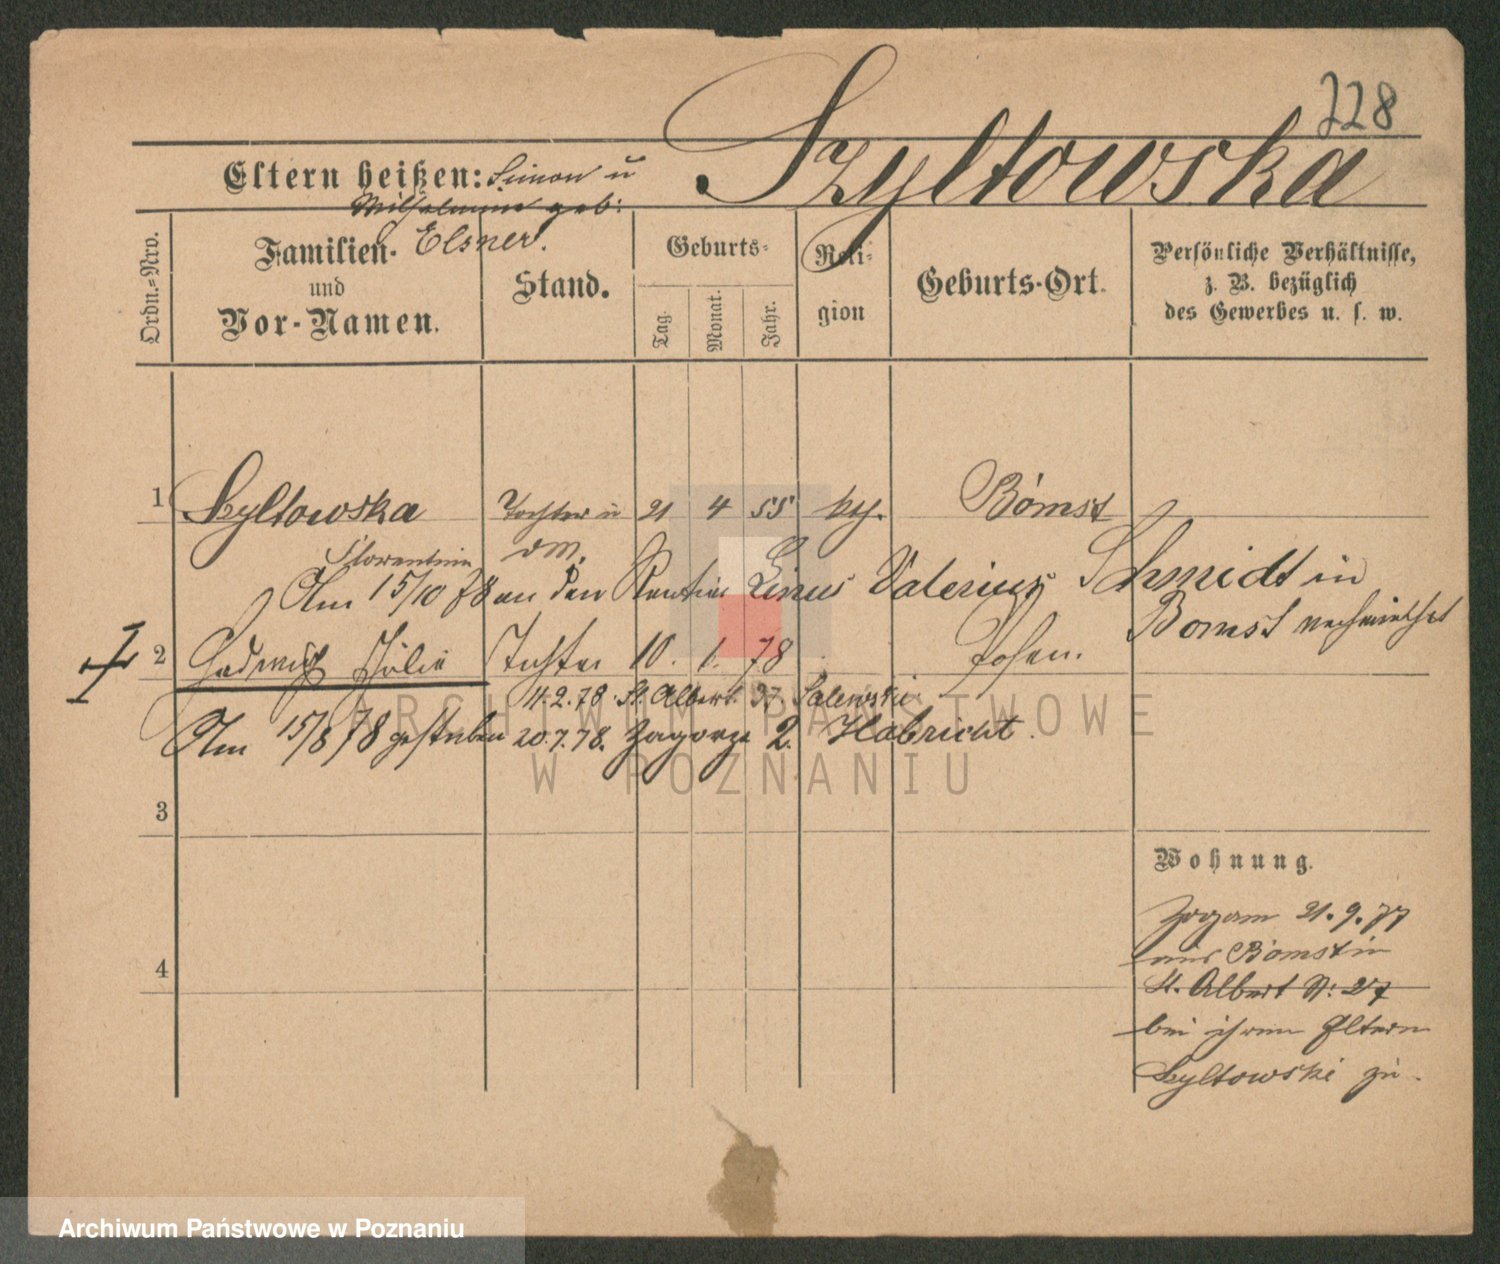 228
Szyltowska
Eltern heißen: Simon u
Wilhelmine geb:
Elsner.
Ordn.-Nro.
Familien-
und
Vor-Namen.
Stand.
Geburts-
Tag.
Monat.
Jahr.
Reli-
gion
Geburts-Ort.
Persönliche Verhältnisse,
z. B. bezüglich
des Gewerbes u. s. w.
1 Szyltowska Tochter u 21 4 55 kth. Bomst
Florentine
Am 15/10 78 an den Rentier Linus Valerius Schmidt in
Bomst verheirathet
2 Hedwig Julie Tochter 10. 1. 78 Posen.
11.2.78 St. Albert. 37. Salewski
Am 15/8 78 gestorben 20.7.78. Zagorze 2. Habricht.
3
4
Wohnung.
Zogam 21.9.77
aus Bomst in
St. Albert N: 27
bei ihren Eltern
Szyltowski zu.
ARCHIWUM PAŃSTWOWE
W POZNANIU
Archiwum Państwowe w Poznaniu